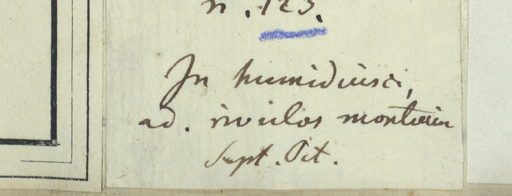 n. 123.
In humidiusci,
ad. rivulos montium
Sept. Oct.